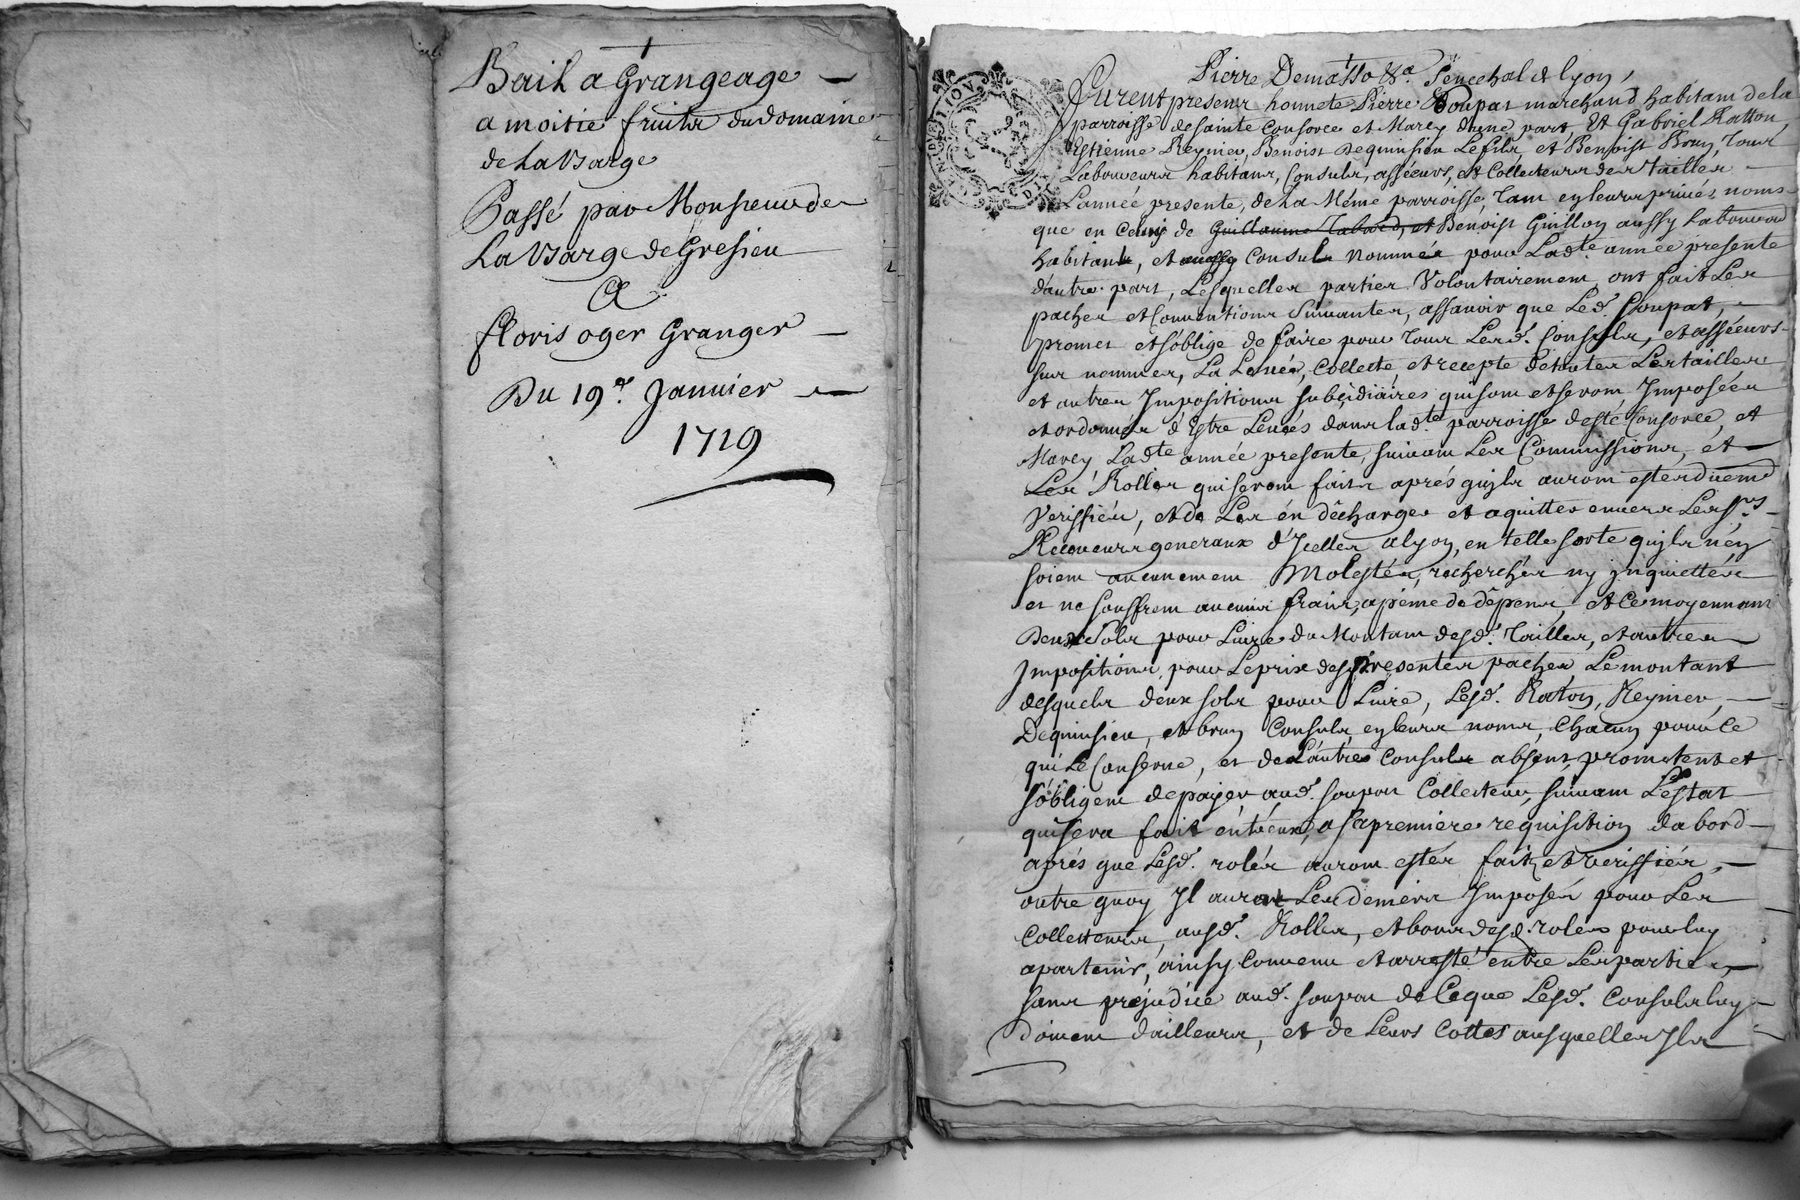 Bail a Grangeage
a moitié fruits du domaine
de La Varge
Passé par Monsieur de
La Varge de Gresieu
A
floris oger Granger
Du 19e. Janvier
1719
Pierre Demasso &a. Senechal de lyon,
Furent presens honnete Pierre Soupat marchand habitant de la
parroisse de sainte Consorce et Marcy d'une part, Et Gabriel Ratton,
Estienne Reynier, Benoist Dequinsieu Le fils, et Benoist Brun, Tous
Laboureurs habitans, Consuls, asséeurs, et Collecteurs des Tailles
L'année presente, de La Méme parroisse, Tant en leurs privés noms
que en Celuy de Guillaume Tabard, et Benoist Guillon aussy Laboureur
habitant, et aussy Consul nommés pour Ladte. année presente
d'autre part, Lesquelles parties Volontairement ont fait Les
paches et Conventions Suivantes, assavoir que Led. Soupat,
promet et s'oblige de faire pour Tous Lesd. Consuls, et asséeurs
sus nommés, La Levée, Collecte et recepte de toutes Les tailles
et autres Impositions subcidiaires qui sont et seront Imposées
et ordonnées d'Estre Levées dans ladte. parroisse de Ste Consorce, et
Marcy, Ladte année presente, suivant Les Commissions, et
Les Rolles qui seront faits aprés qu'jls auront estes duement
Verissiés, et de Les en décharger et aquitter envers Les Srs.
Receveurs generaux d'Jcelles a lyon, en telle sorte qu'jls n'en
soient aucunement Molestés, recherchés ny jnquiettés
et ne souffrent aucuns frais, a peine de dépens, et Ce moyennant
Deux Sols pour Livre du Montant desd. Tailles, et autres
Impositions, pour Le prix des presentes paches, Le montant
desquels deux sols pour Livre, Lesd. Raton, Reynier,
Dequinsieu, et brun Consuls, en leurs noms, Chacun pour Ce
qui Le Conserne, et de L'autre Consul absent, promettent et
s'obligent de payer aud. soupat Collecteur, suivant L'estat
qui sera fait entreux, a sa premiere requisition dabord
aprés que Lesd. rolés auront estés faits et verissiés,
outre quoy Jl aura Les deniers Imposés pour Les
Collecteurs, ausd. Rolles, et bous desd. roles pour luy
apartenir, ainsy Convenu et arresté entre Les parties,
sans préjudice aud. soupat de Ce que Lesd. Consuls luy
doivent dailleurs, et de Leurs Cottes ausquelles Jls